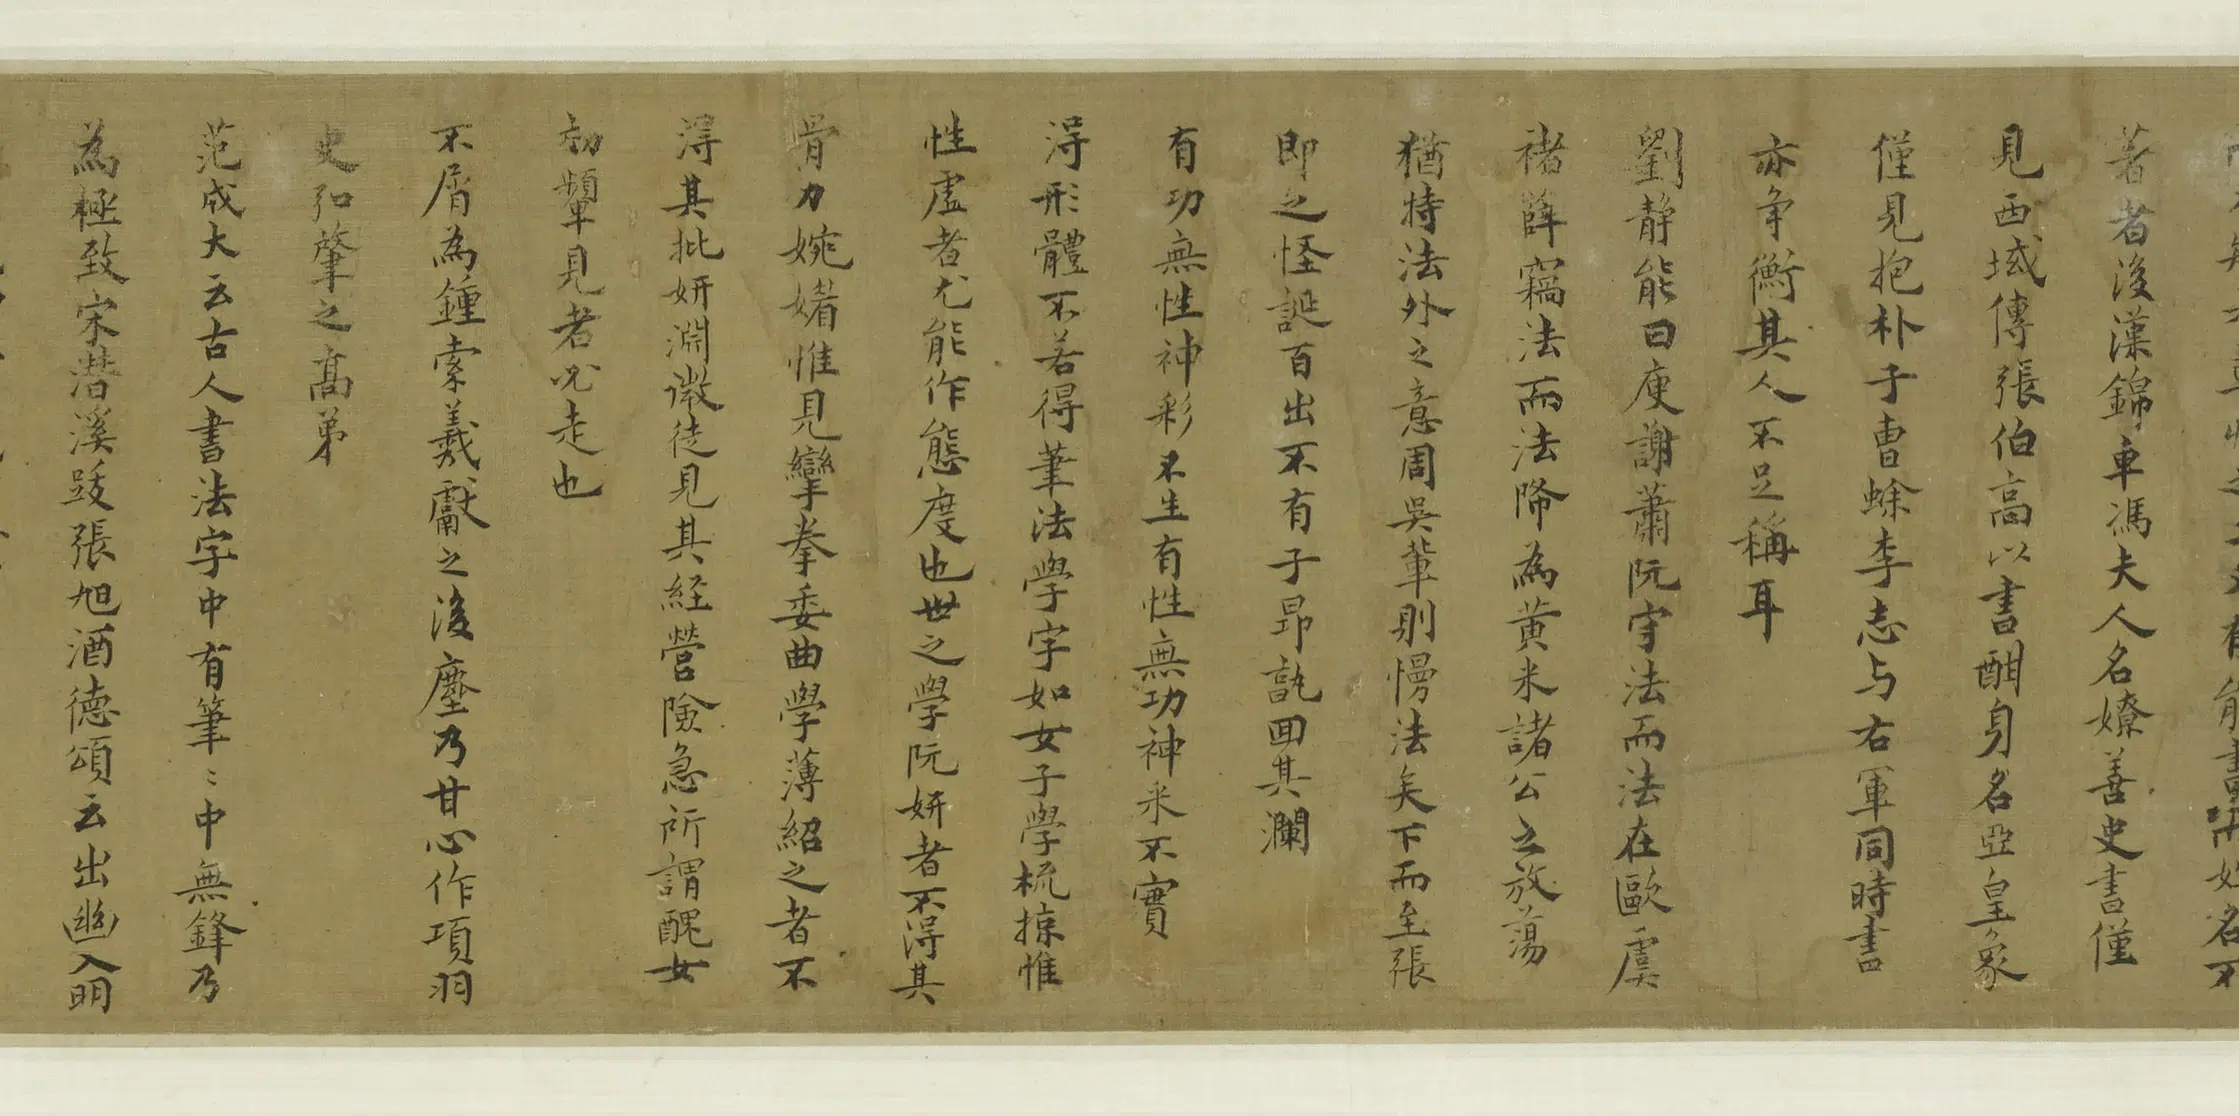 能書名不
著者後漢錦車馮夫人名嫽善史書僅
見西域傳張伯高以書酣身名亞皇象
僅見抱朴子曹蜍李志与右軍同時書
亦争衡其人不足稱耳
劉静能曰庾謝蕭阮守法而法在歐虞
褚薛竊法而法降為黃米諸公之放蕩
猶持法外之意周吳輩則慢法矣下而至張
即之怪誕百出不有子昂孰回其瀾
有功無性神彩不生有性無功神采不實
淂形體不若得筆法學字如女子學梳掠惟
性虛者尤能作態度也世之學阮妍者不淂其
骨力婉媚惟見攣拳委曲學薄紹之者不
淂其批妍淵微徒見其経營險急所謂醜女
効顰見者必走也
不屑為鍾索義獻之後塵乃甘心作項羽
史弘肇之髙弟
范成大云古人書法字中有筆〻中無鋒乃
為極致宋潜溪跋張旭酒德頌云出幽入明